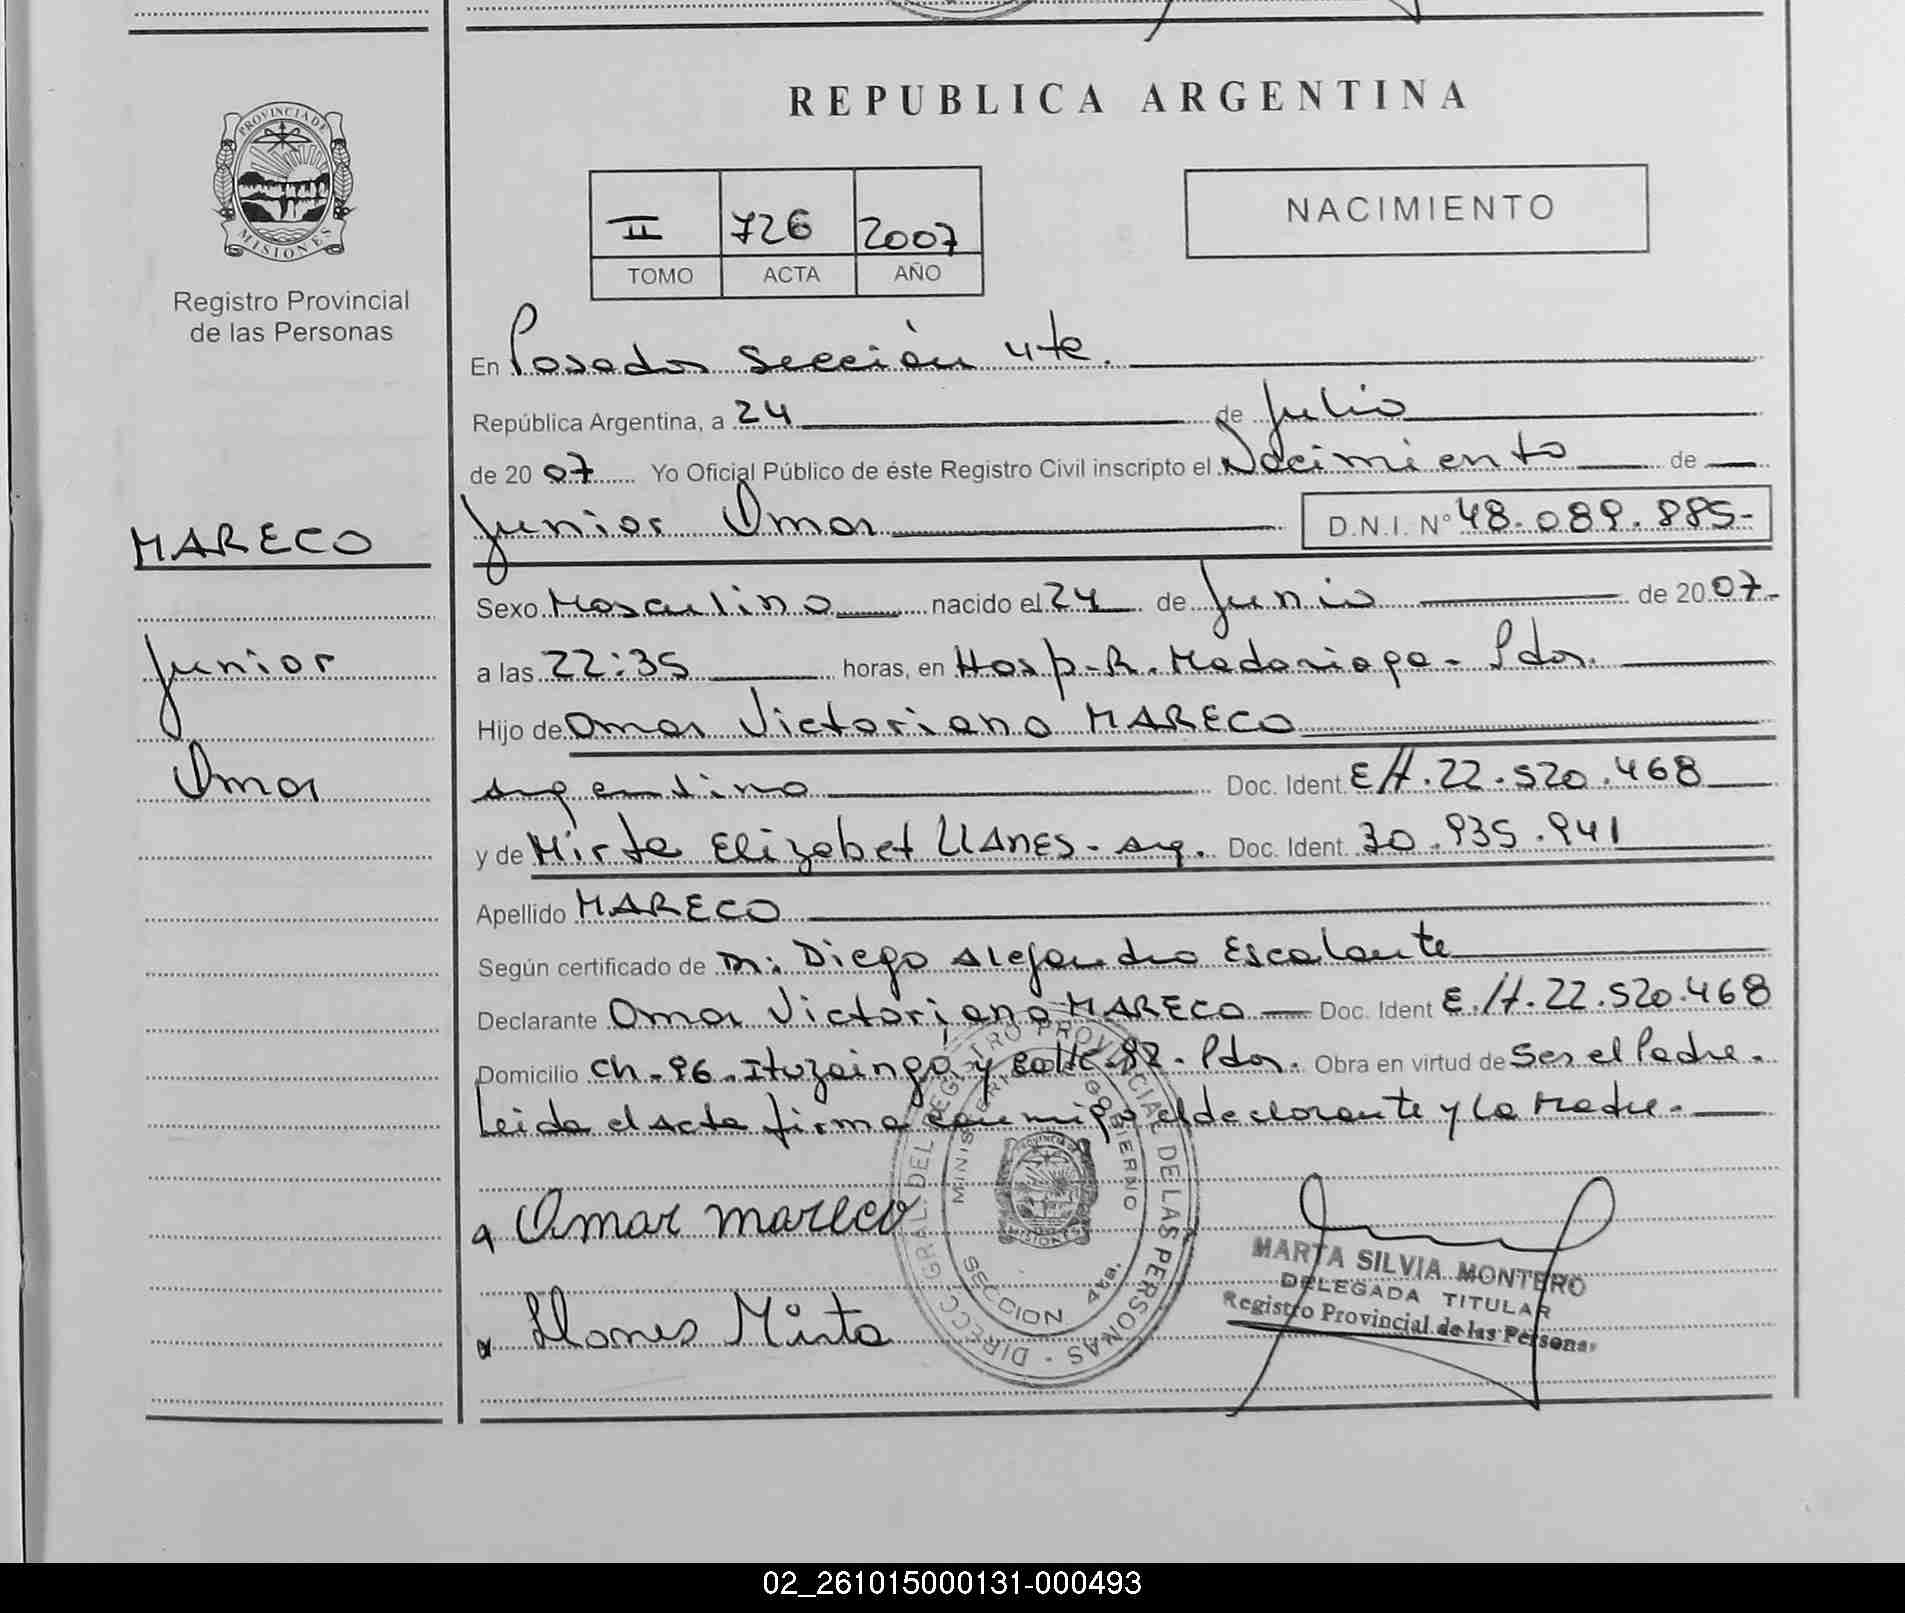 REPUBLICA ARGENTINA
PROVINCIA DE
MISIONES
Registro Provincial
de las Personas
II 726 2007
TOMO ACTA AÑO
NACIMIENTO
En Posadas Sección 4ta.
República Argentina, a 24 de Julio
de 20 07 Yo Oficial Público de éste Registro Civil inscripto el Nacimiento de
Junior Omar D.N.I. N° 48.089.885-
MARECO
Junior
Omar
Sexo Masculino nacido el 24 de Junio de 20 07-
a las 22:35 horas, en Hosp. R. Madariaga - Pdas.
Hijo de Omar Victoriano MARECO
argentino Doc. Ident. E/t. 22.520.468
y de Mirta Elizabet LLANES - arg. Doc. Ident. 30.935.941
Apellido MARECO
Según certificado de M: Diego Alejandro Escalante
Declarante Omar Victoriano MARECO Doc. Ident E./t. 22.520.468
Domicilio Ch. 96. Ituzaingó y calle 92 - Pdas. Obra en virtud de Ser el Padre.
Leida el acta firma conmigo el declarante y la Madre.
Omar mareco
Llanes Mirta
DIRECC. GRAL. DEL REGISTRO PROVINCIAL DE LAS PERSONAS
MINISTERIO GOBIERNO
MISIONES
SECCION 4ta.
MARTA SILVIA MONTERO
DELEGADA TITULAR
Registro Provincial de las Personas
02_261015000131-000493